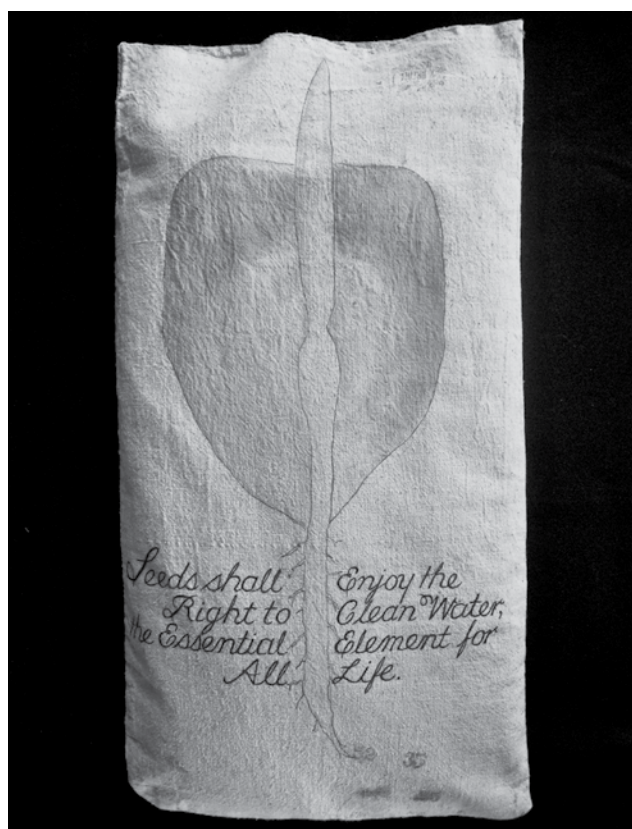 Seeds shall Enjoy the
Right to Clean Water,
the Essential Element for
All Life.